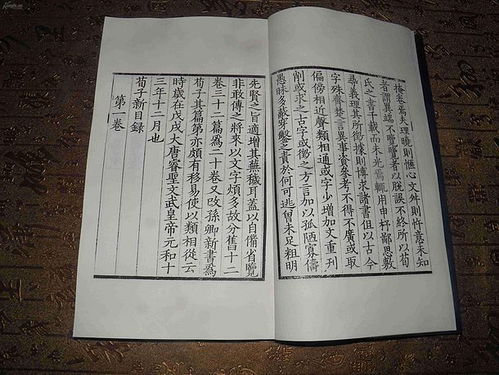 掩卷焉夫理曉則愜心文舛則忤意未知
者謂異端不覽覽者以脫誤不終所以荀
氏之書千載而未光焉輒用申抒鄙思敷
尋義理其所徵據則博求諸書但以古今
字殊齊楚言異事資參考不得不廣或取
偏傍相近聲類相通或字少增加文重刊
削或求之古字或徵之方言加以孤陋寡儔
愚昧多蔽穿鑿之責於何可逃曾未足粗明
先賢之旨適增其蕪穢耳蓋以自備省覽
非敢傳之將來以文字頗多故分舊十二
卷三十二篇為二十卷又改孫卿新書為
荀子其篇第亦頗有移易使以類相從云
時歲在戊戌大唐睿聖文武皇帝元和十
三年十二月也
荀子新目錄
第一卷